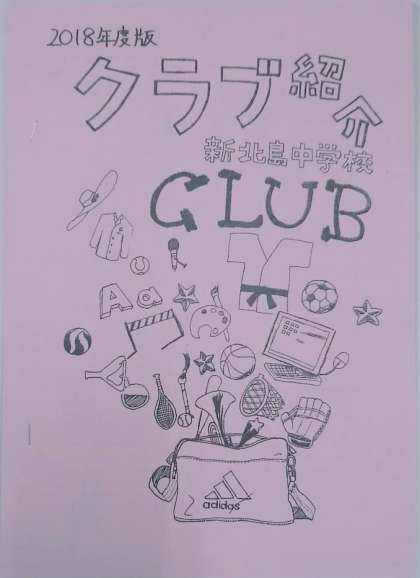 2018年度版
クラブ紹介
新北島中学校
CLUB
Aa
adidas